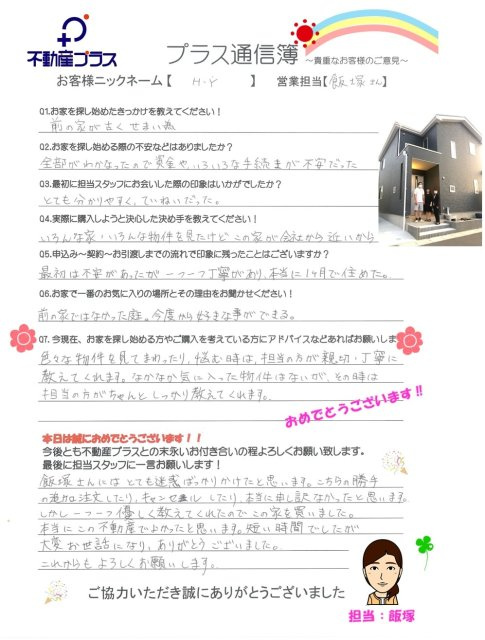 不動産プラス
プラス通信簿 ～貴重なお客様のご意見～
お客様ニックネーム【 H・Y 】 営業担当【飯塚さん】
Q1.お家を探し始めたきっかけを教えてください！
前の家が古くせまい為
Q2.お家を探し始める際の不安などはありましたか？
全部がわからなかったので資金や、いろいろな手続きが不安だった
Q3.最初に担当スタッフにお会いした際の印象はいかがでしたか？
とても分かりやすく、ていねいだった。
Q4.実際に購入しようと決心した決め手を教えてください！
いろんな家・いろんな物件を見たけどこの家が会社から近いから
Q5.申込み～契約～お引渡しまでの流れで印象に残ったことはございますか？
最初は不安があったが一つ一つ丁寧があり、本当に1ヶ月で住めた。
Q6.お家で一番のお気に入りの場所とその理由をお聞かせください！
前の家ではなかった庭。今度から好きな事ができる。
Q7.今現在、お家を探し始める方やご購入を考えている方にアドバイスなどあればお願いしま
色々な物件を見てまわったり、悩む時は、担当の方が親切・丁寧に
教えてくれます。なかなか気に入った物件はないが、その時は
担当の方がちゃんとしっかり教えてくれます。
おめでとうございます!!
本日は誠におめでとうございます！！
今後とも不動産プラスとの末永いお付き合いの程よろしくお願い致します。
最後に担当スタッフに一言お願いします！
飯塚さんにはとても迷惑ばっかりかけたと思います。こちらの勝手
の追加注文したり、キャンセルしたり、本当に申し訳なかったと思います。
しかし一つ一つ優しく教えてくれたのでこの家を買いました。
本当にこの不動産でよかったと思います。短い時間でしたが
大変お世話になり、ありがとうございました。
これからもよろしくお願いします。
ご協力いただき誠にありがとうございました
担当：飯塚